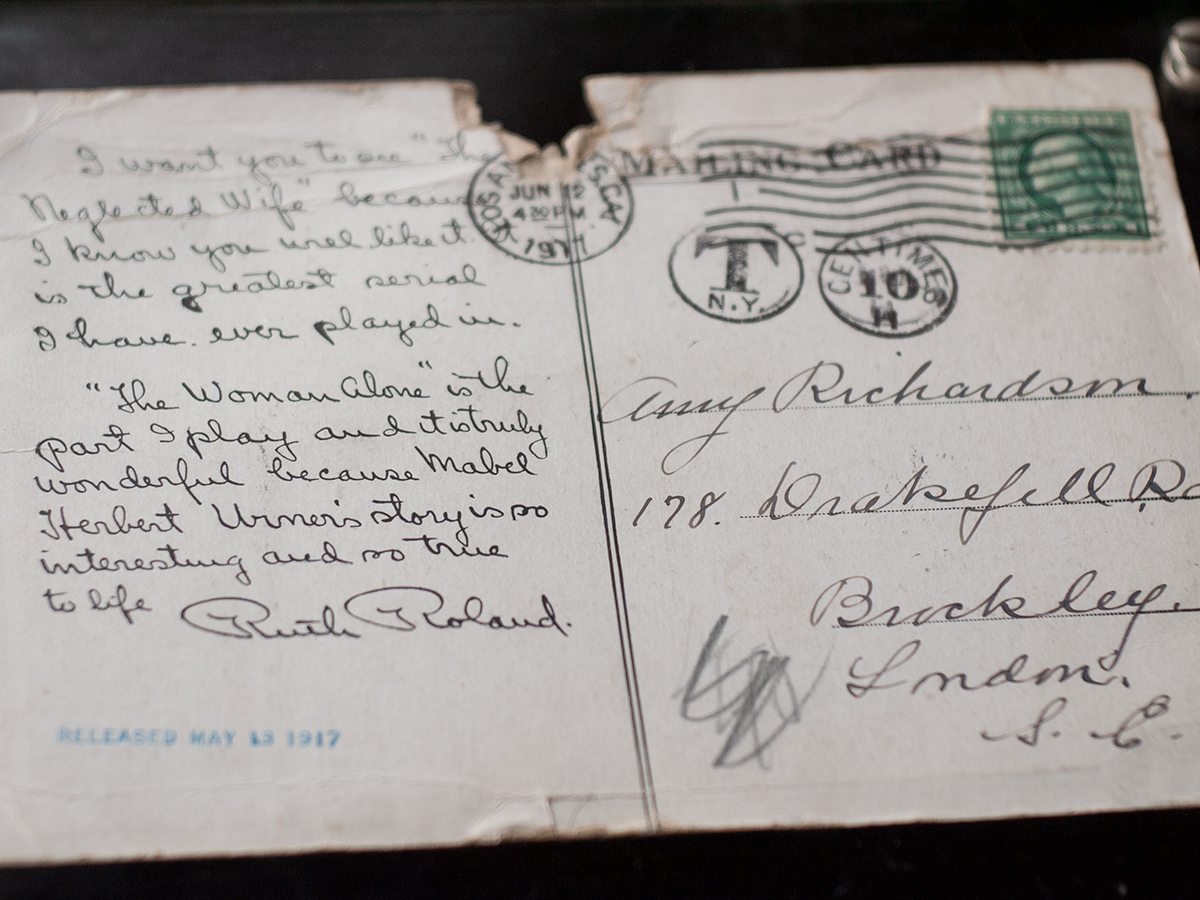 I want you to see "The
Neglected Wife" because
I know you will like it
is the greatest serial
I have ever played in.
"The Woman Alone" is the
part I play and it is truly
wonderful because Mabel
Herbert Urner's story is so
interesting and so true
to life
Ruth Roland.
RELEASED MAY 13 1917
LOS A S, CA
JUN 12
4 30 PM
1917
MAILING CARD
T
N.Y.
CENTIMES
10
Amy Richardson.
178. Drakefell Ro
Brockley.
London.
S. E.